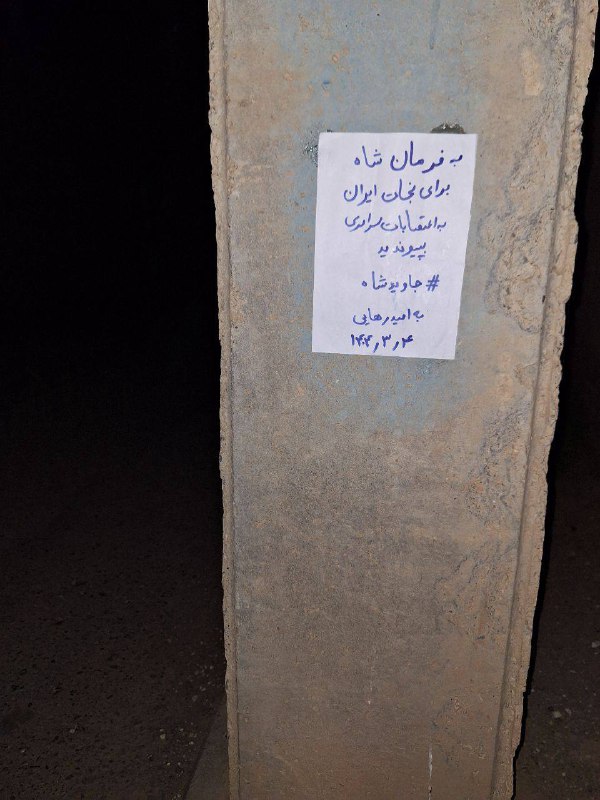 به فرمان شاه
برای نجات ایران
به اعتصابات سراسری
بپیوندید
#جاویدشاه
به امید رهایی
۱۴۰۴٫۳٫۴